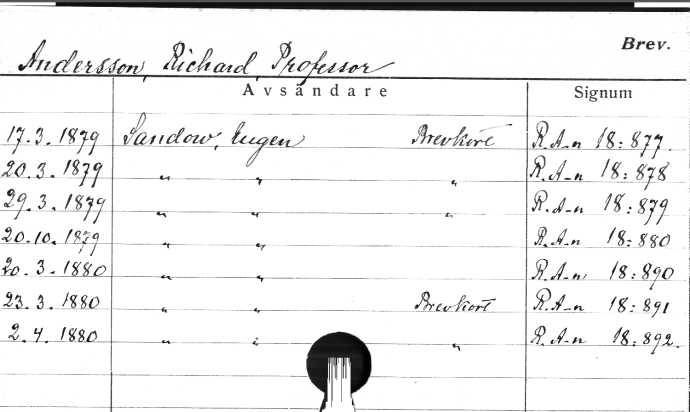 Brev.
Andersson, Richard, Professor
Avsändare Signum
17.3.1879 Sandow, Eugen Brevkort R.A-n 18:877.
20.3.1879 " " " R.A-n 18:878
29.3.1879 " " " R.A-n 18:879
20.10.1879 " " R.A-n 18:880
20.3.1880 " " R.A-n 18:890
23.3.1880 " " Brevkort R.A-n 18:891
2.4.1880 " " " R.A-n 18:892.